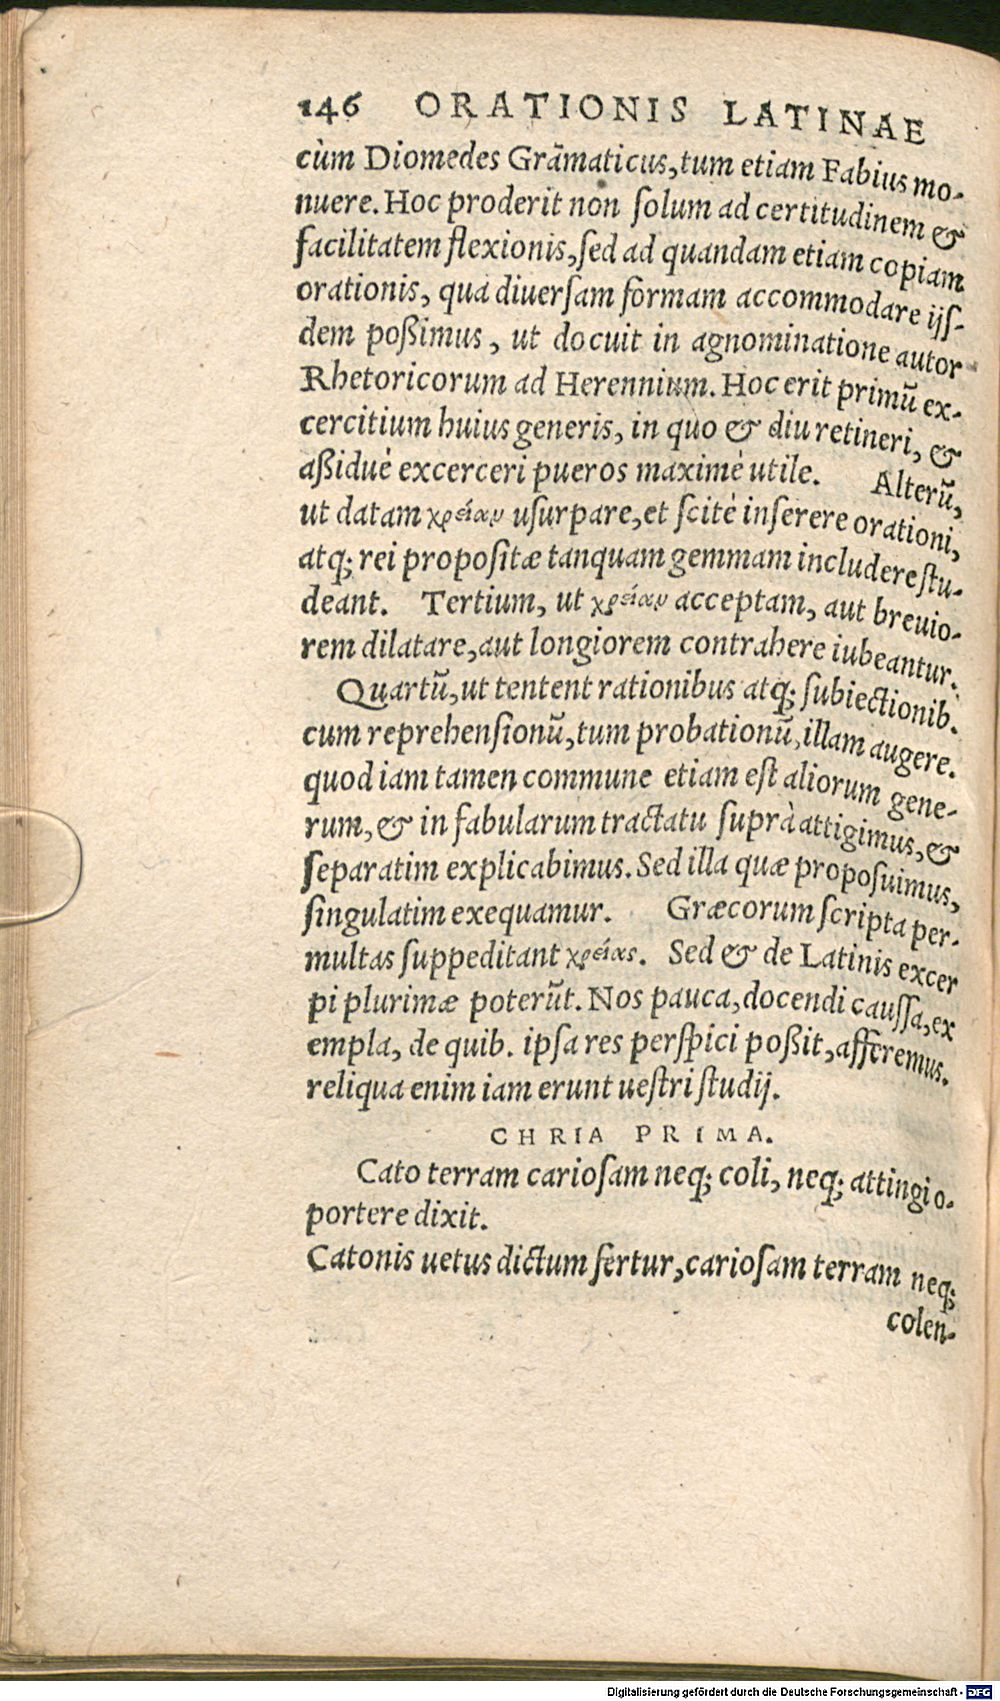 146 ORATIONIS LATINAE
cùm Diomedes Grāmaticus, tum etiam Fabius mo-
nuere. Hoc proderit non ſolum ad certitudinem &
facilitatem flexionis, ſed ad quandam etiam copiam
orationis, qua diuerſam formam accommodare ijſ-
dem poßimus, ut docuit in agnominatione autor
Rhetoricorum ad Herennium. Hoc erit primū ex-
cercitium huius generis, in quo & diu retineri, &
aßiduè excerceri pueros maximè utile. Alterū,
ut datam χρείαν uſurpare, et ſcitè inſerere orationi,
atq; rei propoſitæ tanquam gemmam includere ſtu-
deant. Tertium, ut χρείαν acceptam, aut breuio-
rem dilatare, aut longiorem contrahere iubeantur.
Quartū, ut tentent rationibus atq; ſubiectionib.
cum reprehenſionū, tum probationū, illam augere.
quod iam tamen commune etiam eſt aliorum gene-
rum, & in fabularum tractatu ſuprà attigimus, &
ſeparatim explicabimus. Sed illa quæ propoſuimus,
ſingulatim exequamur. Græcorum ſcripta per-
multas ſuppeditant χρείας. Sed & de Latinis excer
pi plurimæ poterūt. Nos pauca, docendi cauſſa, ex
empla, de quib. ipſa res perſpici poßit, afferemus.
reliqua enim iam erunt ueſtri ſtudij.
CHRIA PRIMA.
Cato terram carioſam neq; coli, neq; attingi o-
portere dixit.
Catonis uetus dictum fertur, carioſam terram neq;
colen-
Digitalisierung gefördert durch die Deutsche Forschungsgemeinschaft - DFG